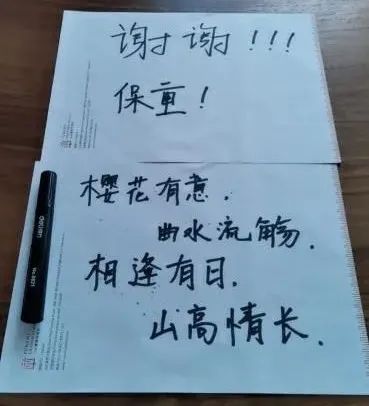 谢谢!!!
保重!
樱花有意.
曲水流觞.
相逢有日.
山高情长.
deli